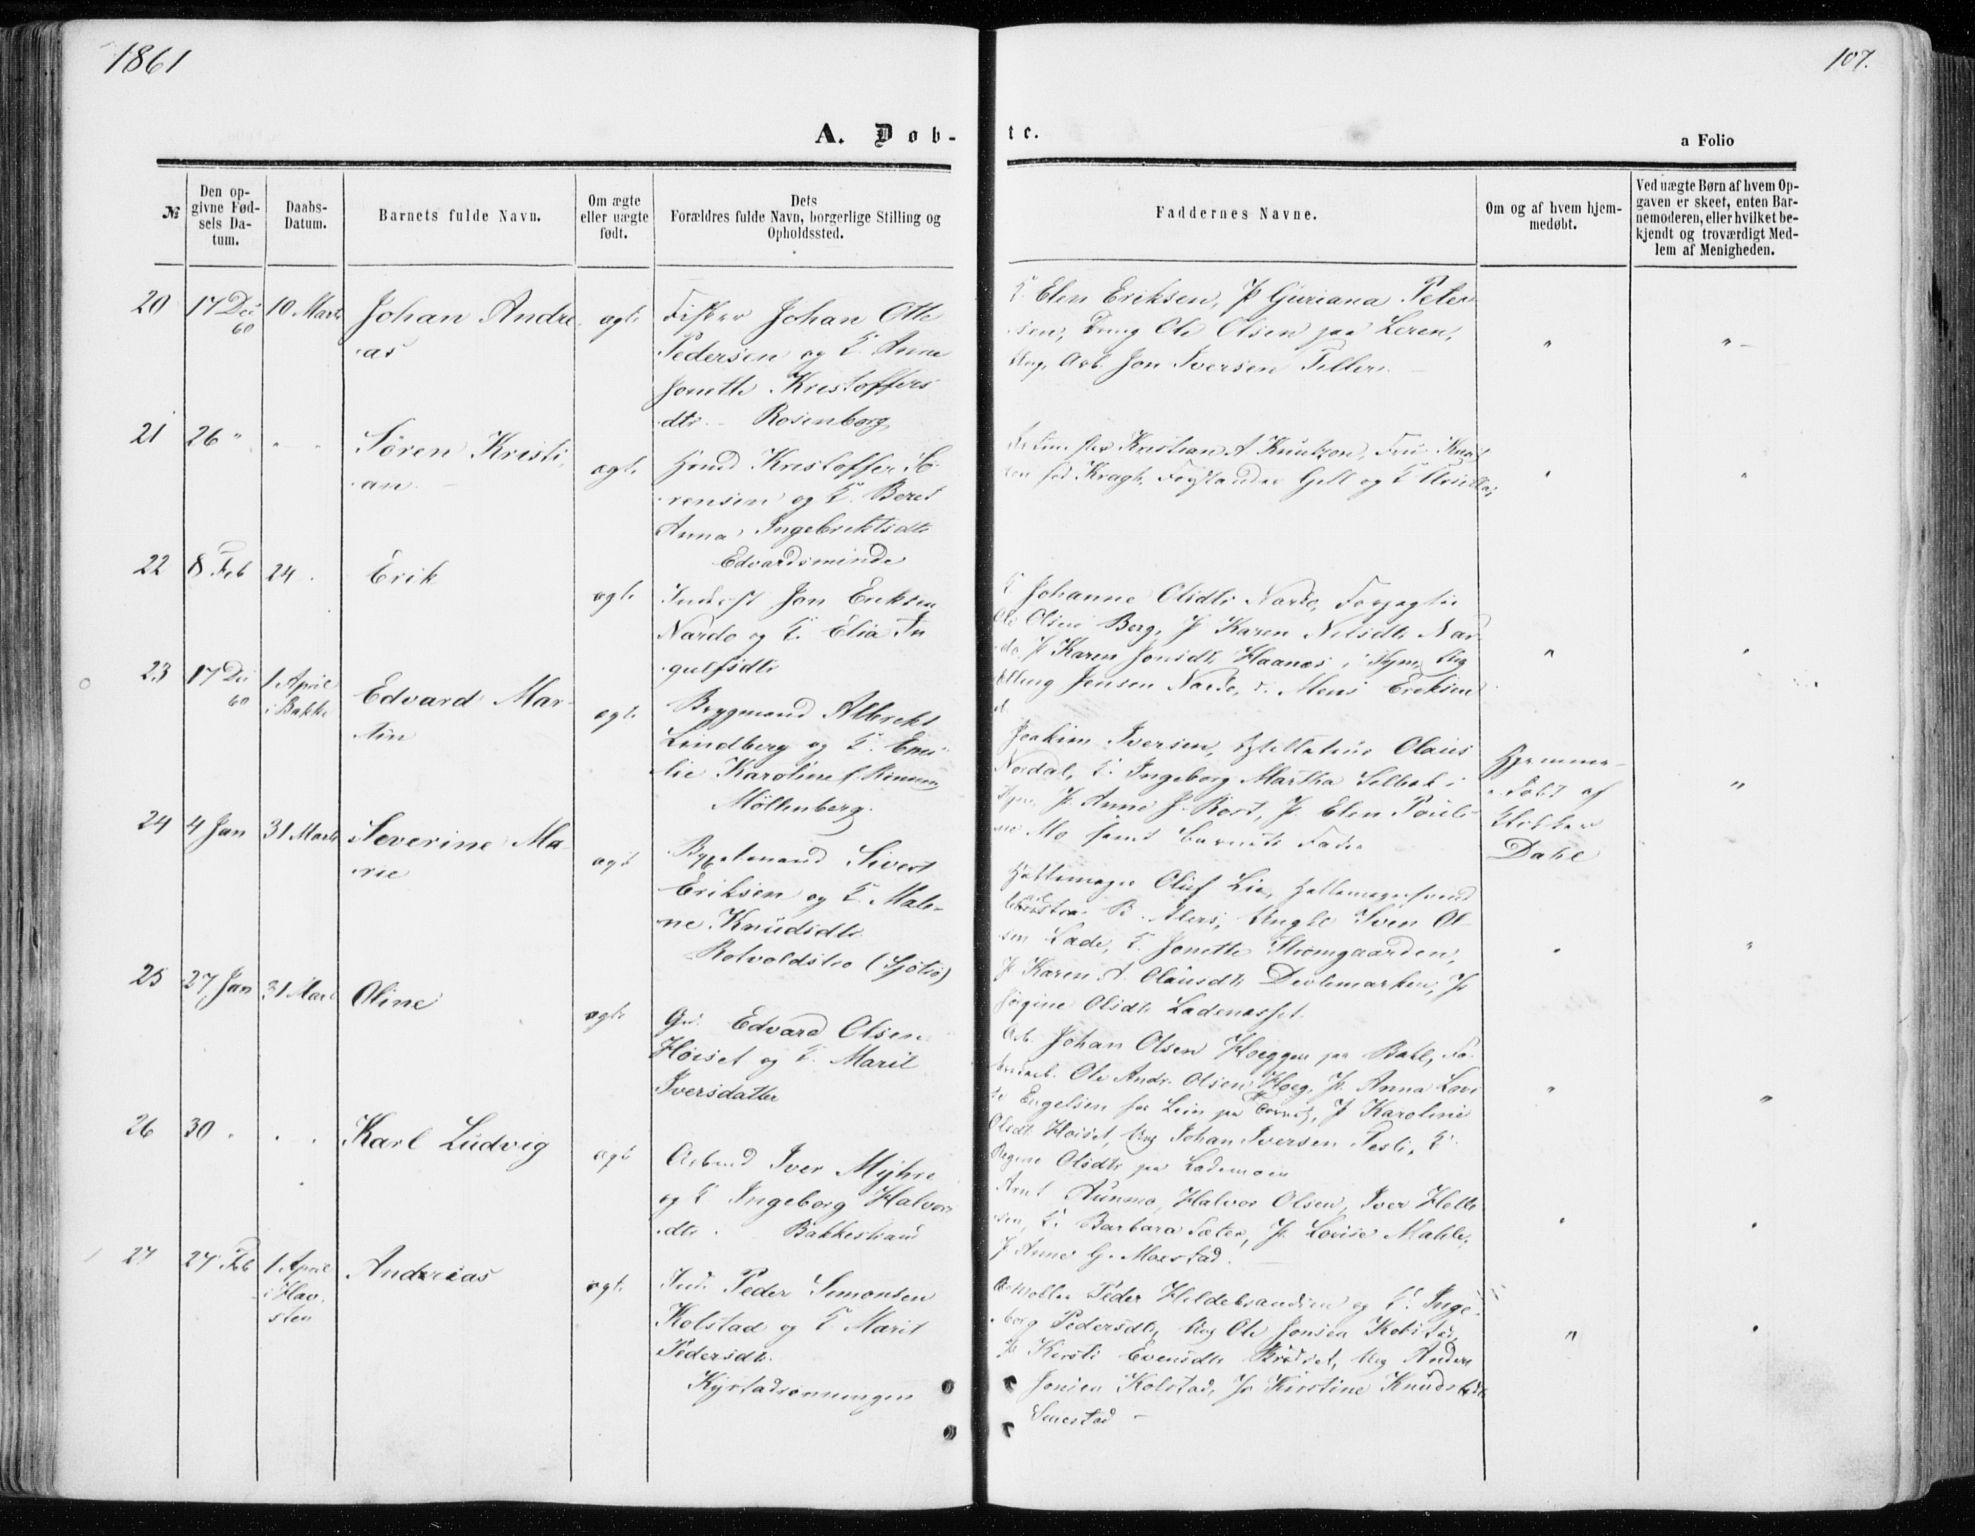 1861
107.
A. Døb-
te.
a Folio
№
Den op-
givne Fød-
sels Da-
tum.
Daabs-
Datum.
Barnets fulde Navn.
Om ægte
eller uægte
født.
Dets
Forældres fulde Navn, borgerlige Stilling og
Opholdssted.
Faddernes Navne.
Om og af hvem hjem-
medøbt.
Ved uægte Børn af hvem Op-
gaven er skeet, enten Bar-
nemoderen, eller hvilket be-
kjendt og troværdigt Med-
lem af Menigheden.
20 17 Dec 60 10 Marts
Johan Andre
as
ægte
Fisker Johan Otto
Pedersen og H. Anne
Jonette Kristoffers
dtr. Rosenborg
Elen Eriksen, P Guriana Peter
sen, Ole Olsen paa Leren,
Ung. Arb. Jon Iversen Tiller
21 26 "
Sören Kristi
an
ægte
Kristoffer Sö
rensen og H. Beret
Anna Ingebriktsdtr
Edvardsminde
Kristian A Knutzon, Fru Knut
zon fød Kragh,
22 8 Feb 24
Erik
ægte
Inderst Jon Eriksen
Nardo og H. Elia In
gulfsdtr
Johanne Olsdtr Nardo,
Ole Olsen Berg, P Karen Nilsdtr Nar
do, P Karen Jonsdtr Haanes i
Jensen Nardo, Eriksen
23 17 Dec 60 1 April i Bakke
Edvard Mar
tin
ægte
Brygmand Albrekt
Lindberg og H. Emi
lie Karoline f.
Möllenberg.
Joakim Iversen, Olaus
Nordal, H. Ingeborg Martha Selbak i
P. Anne J. Rost, P. Elen Pauli
ne Mo samt Barnets Fader
Hjemme-
døbt af
Klokker
Dahl
24 4 Jan 31 Marts
Severine Ma
rie
ægte
Sivert
Eriksen og H. Male-
ne Knudsdtr
Rotvoldstrø (Sjötrø)
Hattemager Oluf Lie, Hattemagersvend
B. Ungk Sven Ol
sen Lade, H. Jonette Strømgaarden,
P Karen A. Olausdtr Devlemarken, P
Jörgine Olsdtr Ladenesset.
25 27 Jan 31 Marts
Oline
ægte
Gd. Edvard Olsen
Höiset og H. Marit
Iversdatter
Arb. Johan Olsen Hoeggen paa Bakl,
Ole Andr. Olsen Hoeg, P. Anna Lovi
se Engelsen P Karoline
Olsdtr Höiset, Ung Johan Iversen H.
Regine Olsdtr paa Lademoen
26 30
Karl Ludvig
ægte
Arbmd Iver Myhre
og H Ingeborg Halvors
dtr. Bakkestrand
Arnt Aunmo, Halvor Olsen, Iver
sen, H. Barbara Sæter, P. Lovise Mahler,
P Anne G. Moxstad.
27 27 Feb 1 April i Hav-
sten
Andreas
ægte
Ind. Peder Simonsen
Kolstad og H. Marit
Pedersdtr.
Kystadsonningen
Peder Hildebrandsen og H. Inge
borg Pedersdtr, Ung Ole Jonsen Kolstad,
P Kirsti Evensdtr Brödset, Ung Anders
Jonsen Kolstad, P Kirstine Knudsdtr